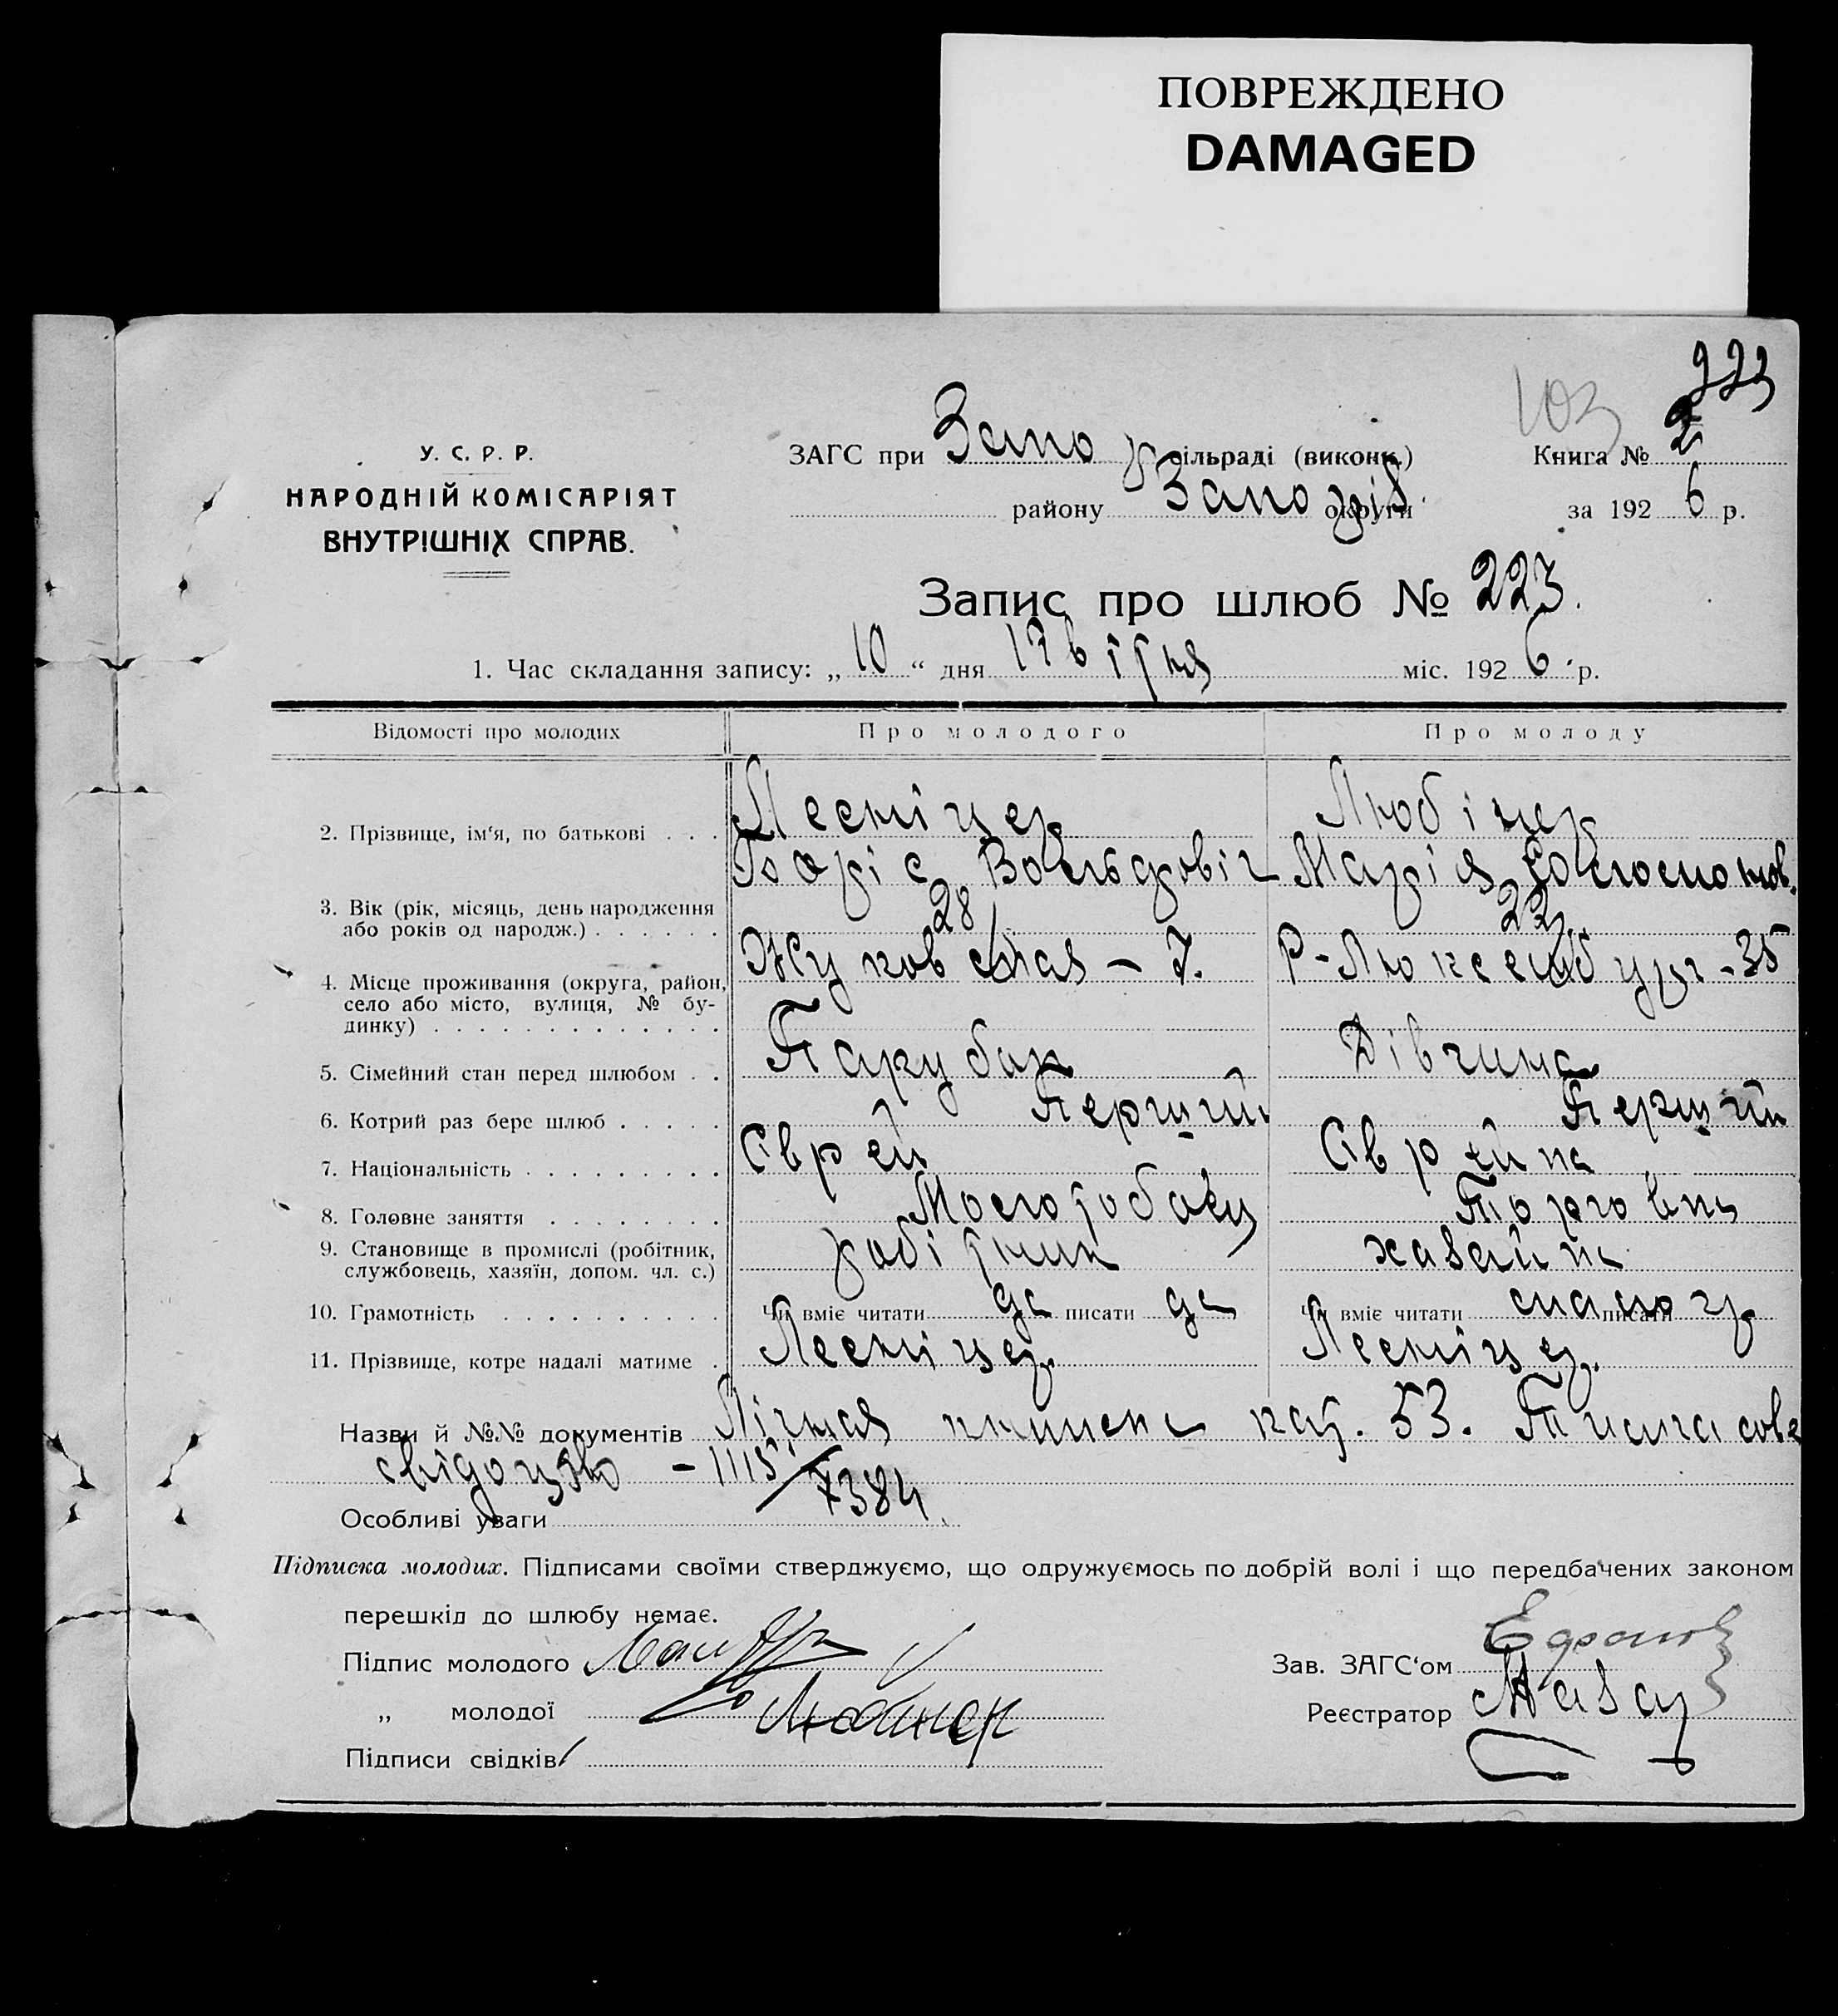 ПОВРЕЖДЕНО
DAMAGED
223
103
У. С. Р. Р.
НАРОДНІЙ КОМІСАРІЯТ
ВНУТРІШНІХ СПРАВ.
ЗАГС при Запор сільраді (виконк.)
району Запоріз. округи
Книга № 2
за 1926 р.
Запис про шлюб № 223.
1. Час складання запису: „ 10 “ дня міс. 1926 р.
Відомості про молодих Про молодого Про молоду
2. Прізвище, ім‘я, по батькові . . . Леснiцер Любiнер
Борiс Марiя
3. Вік (рік, місяць, день народження
або років од народж.) . . . . . . 28 22
4. Місце проживання (округа, район,
село або місто, вулиця, № бу-
динку) . . . . . . . . . . . . . Жуковская – 7. Р-Люксембург-35
5. Сімейний стан перед шлюбом . . Парубок Дівчина
6. Котрий раз бере шлюб . . . . . Перший Перший
7. Національність . . . . . . . . . Єврей Єврейка
8. Головне заняття . . . . . . . Торговка
9. Становище в промислі (робітник,
службовець, хазяїн, допом. чл. с.) робітник хазайка
10. Грамотність . . . . . . . . . . Чи вміє читати да писати да Чи вміє читати писати
11. Прізвище, котре надалі матиме . Леснiцер. Леснiцер.
Назви й №№ документів Лічная книжка 53.
свідоцтво – 1115/7384.
Особливі уваги
Підписка молодих. Підписами своїми стверджуємо, що одружуємось по добрій волі і що передбачених законом
перешкід до шлюбу немає.
Підпис молодого
„ молодої Любинер
Підписи свідків
Зав. ЗАГС‘ом
Реєстратор